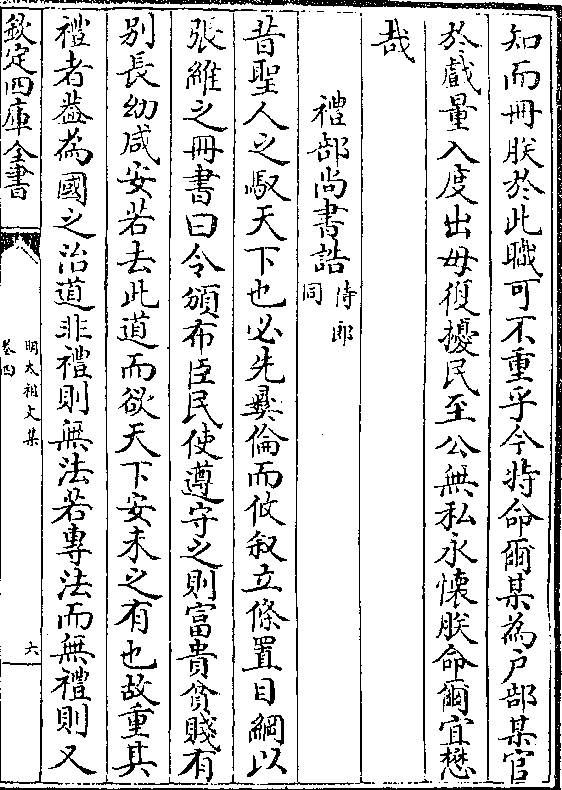 知而冊朕於此職可不重乎今特命爾某為户部某官
於戲量入度出毋復擾民至公無私永懷朕命爾宜懋
哉
禮部尚書誥侍郎同
昔聖人之馭天下也必先彛倫而攸叙立條置目綱以
張維之冊書曰令頒布臣民使遵守之則富貴貧賤有
别長幼咸安若去此道而欲天下安未之有也故重其
禮者葢為國之治道非禮則無法若專法而無禮則又
欽定四庫全書
明太祖文集
卷四
六